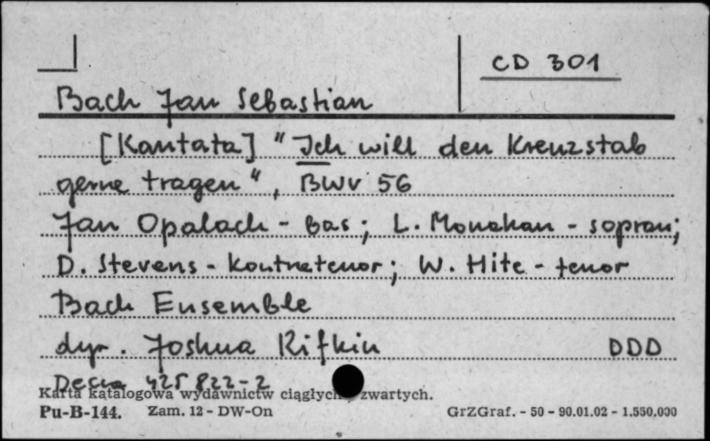 CD 301
Bach Jan Sebastian
[Kantata] "Ich will den Kreuzstab
gerne tragen", BWV 56
Jan Opalach - bas; L. Monahan - sopran;
D. Stevens - kontratenor; W. Hite - tenor
Bach Ensemble
dyr. Joshua Rifkin DDD
Decca 425 822-2
Karta katalogowa wydawnictw ciągłych zwartych.
Pu-B-144. Zam. 12 - DW-On GrZGraf. - 50 - 90.01.02 - 1.550.000